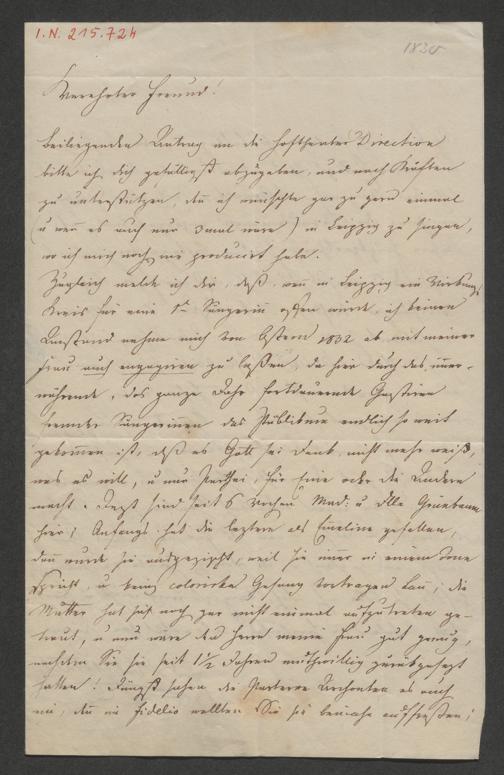 I.N. 215.724
1830
Verehrter Freund!
beiliegenden Antrag an die Hoftheater Direction
bitte ich dich gefälligst abzugeben, und nach Kräften
zu unterstützen, den ich wünschte gar zu gern einmal
(u wen es auch nur 3mal wäre) in Leipzig zu singen,
wo ich mich noch nie producirt habe.
Zugleich melde ich dir, daß, wen in Leipzig ein Wirkungs
Kreis für eine 1te Sängerin offen würde, ich keinen
Anstand nehme mich von Ostern 1832 ab mit meiner
Frau auch engagiren zu laßen, da hier durch das imer-
währende, das ganze Jahr fortdauernde Gastiren
fremder Sängerinen das Publikum endlich so weit
gekomen ist, daß es Gott sei Dank, nicht mehr weiß,
was es will, u nur Parthei, für Eine oder die Andere
macht. Jezt sind seit 6 Wochen Mad: u Dlle Grünbaum
hier; Anfangs hat die leztere als Emeline gefallen,
dan wurde sie ausgezischt, weil sie imer in einem Tone
spricht, u keinen colorirten Gesang vortragen kan; die
Mutter hat sich noch gar nicht einmal aufzutreten ge-
traut, u nun wäre den Herrn meine Frau gut genug,
nachdem Sie sie seit 1 1/2 Jahren muthwillig zurückgesezt
hatten! Jüngst sahen die Parterre Archonten es auch
ein, den in Fidelio wollten Sie sie beinahe auffreßen;